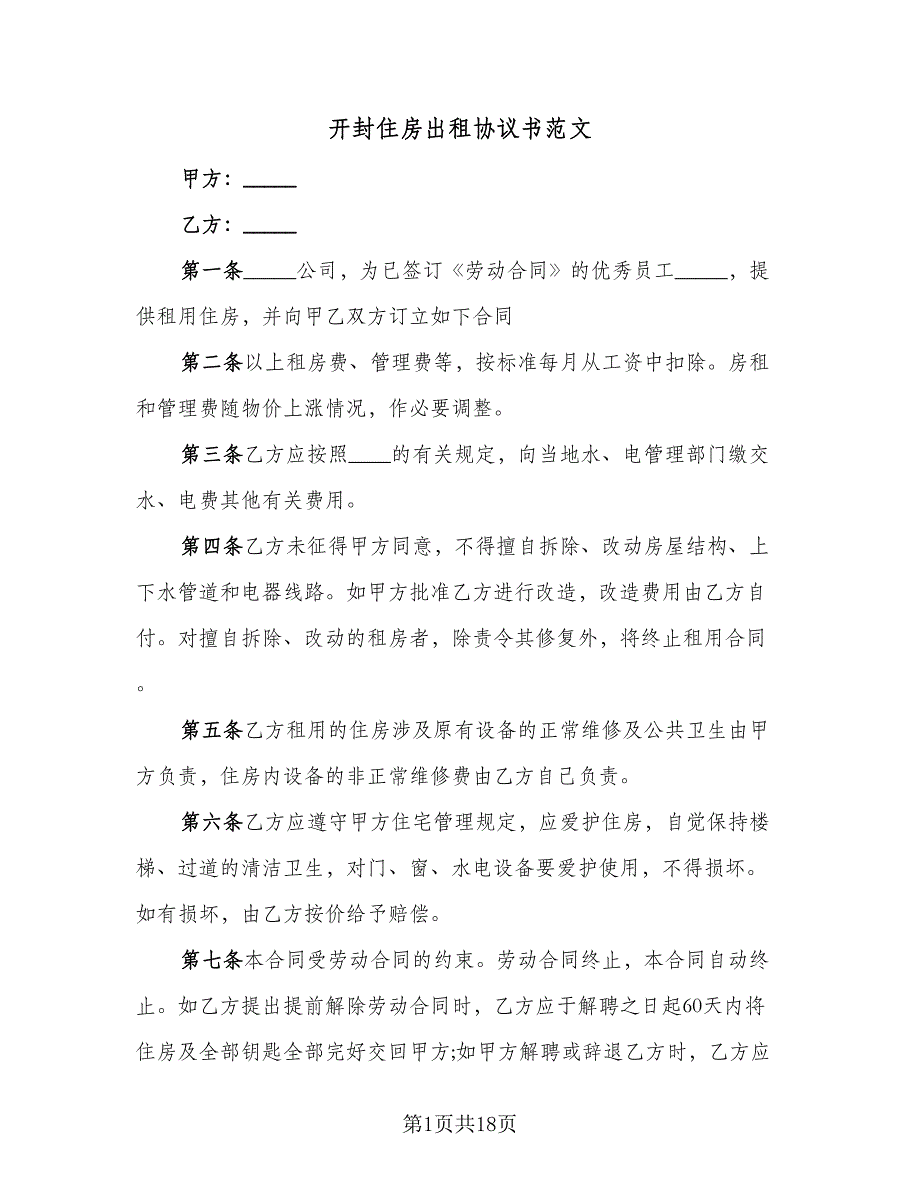 开封住房出租协议书范文
甲方：_____
乙方：_____
第一条_____公司，为已签订《劳动合同》的优秀员工_____，提
供租用住房，并向甲乙双方订立如下合同
第二条以上租房费、管理费等，按标准每月从工资中扣除。房租
和管理费随物价上涨情况，作必要调整。
第三条乙方应按照____的有关规定，向当地水、电管理部门缴交
水、电费其他有关费用。
第四条乙方未征得甲方同意，不得擅自拆除、改动房屋结构、上
下水管道和电器线路。如甲方批准乙方进行改造，改造费用由乙方自
付。对擅自拆除、改动的租房者，除责令其修复外，将终止租用合同
。
第五条乙方租用的住房涉及原有设备的正常维修及公共卫生由甲
方负责，住房内设备的非正常维修费由乙方自己负责。
第六条乙方应遵守甲方住宅管理规定，应爱护住房，自觉保持楼
梯、过道的清洁卫生，对门、窗、水电设备要爱护使用，不得损坏。
如有损坏，由乙方按价给予赔偿。
第七条本合同受劳动合同的约束。劳动合同终止，本合同自动终
止。如乙方提出提前解除劳动合同时，乙方应于解聘之日起60天内将
住房及全部钥匙全部完好交回甲方;如甲方解聘或辞退乙方时，乙方应
第1页共18页